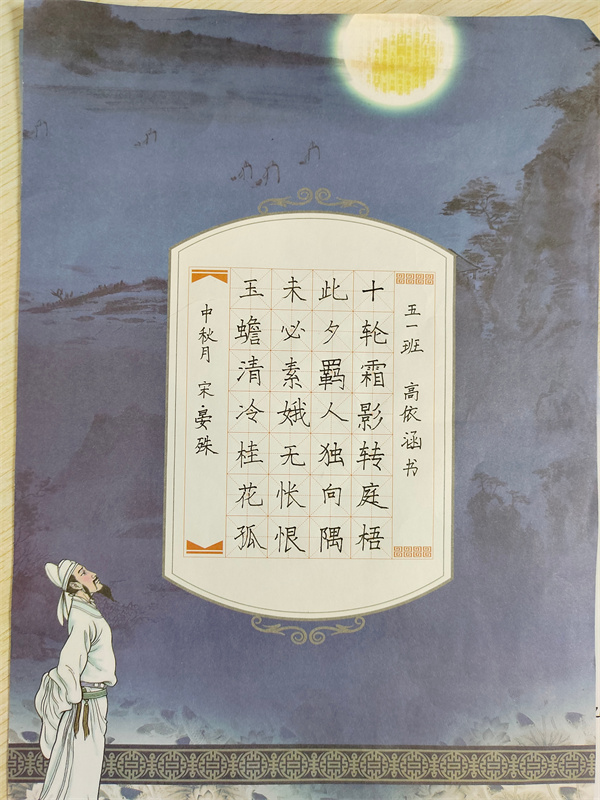 五一班 高依涵书
十轮霜影转庭梧
此夕羁人独向隅
未必素娥无怅恨
玉蟾清冷桂花孤
中秋月 宋·晏殊